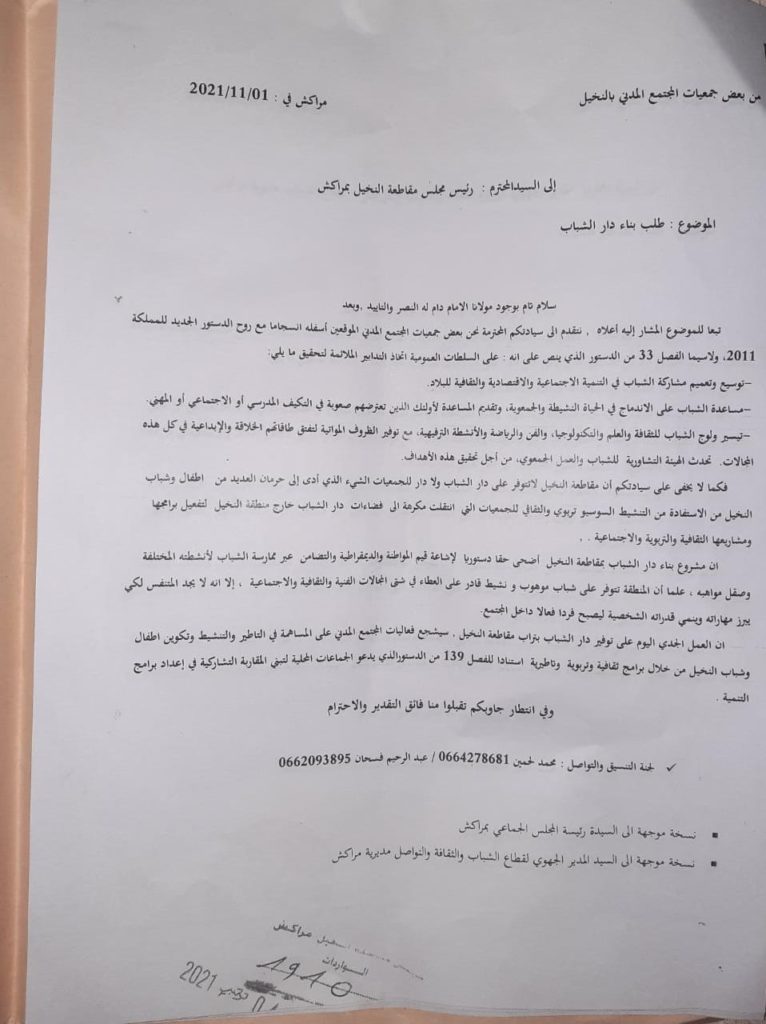 من بعض جمعيات المجتمع المدني بالنخيل
مراكش في : 2021/11/01
إلى السيدالمحترم : رئيس مجلس مقاطعة النخيل بمراكش
الموضوع : طلب بناء دار الشباب
سلام تام بوجود مولانا الامام دام له النصر والتاييد ,وبعد
تبعا للموضوع المشار إليه أعلاه , نتقدم الى سيادتكم المحترمة نحن بعض جمعيات المجتمع المدني الموقعين أسفله انسجاما مع روح الدستور الجديد للمملكة
2011، ولاسيما الفصل 33 من الدستور الذي ينص على انه : على السلطات العمومية اتخاذ التدابير الملائمة لتحقيق ما يلي:
–توسيع وتعميم مشاركة الشباب في التنمية الاجتماعية والاقتصادية والثقافية للبلاد.
–مساعدة الشباب على الاندماج في الحياة النشيطة والجمعوية، وتقديم المساعدة لأولئك الذين تعترضهم صعوبة في التكيف المدرسي أو الاجتماعي أو المهني.
–تيسير ولوج الشباب للثقافة والعلم والتكنولوجيا، والفن والرياضة والأنشطة الترفيهية، مع توفير الظروف المواتية لتفتق طاقاتهم الخلاقة والإبداعية في كل هذه
المجالات. تحدث الهيئة التشاورية للشباب والعمل الجمعوي، من أجل تحقيق هذه الأهداف.
فكما لا يخفى على سيادتكم أن مقاطعة النخيل لاتتوفر على دار الشباب ولا دار للجمعيات الشيء الذي أدى إلى حرمان العديد من اطفال وشباب
النخيل من الاستفادة من التنشيط السوسيو تربوي والثقافي للجمعيات التي انتقلت مكرهة الى فضاءات دار الشباب خارج منطقة النخيل لتفعيل برامجها
ومشاريعها الثقافية والتربوية والاجتماعية . .
ان مشروع بناء دار الشباب بمقاطعة النخيل أضحى حقا دستوريا لإشاعة قيم المواطنة والديمقراطية والتضامن عبر ممارسة الشباب لأنشطته المختلفة
وصقل مواهبه ، علما أن المنطقة تتوفر على شباب موهوب و نشيط قادر على العطاء في شتى المجالات الفنية والثقافية والاجتماعية ، إلا انه لا يجد المتنفس لكي
يبرز مهاراته وينمي قدراته الشخصية ليصبح فردا فعالا داخل المجتمع.
ان العمل الجدي اليوم على توفير دار الشباب بتراب مقاطعة النخيل , سيشجع فعاليات المجتمع المدني على المساهمة في التاطير والتنشيط وتكوين اطفال
وشباب النخيل من خلال برامج ثقافية وتربوية وتاطيرية استنادا للفصل 139 من الدستورالذي يدعو الجماعات المحلية لتبني المقاربة التشاركية في إعداد برامج
التنمية .
وفي انتظار جاوبكم تقبلوا منا فائق التقدير والاحترام
✓ لجنة التنسيق والتواصل : محمد لحمين 0664278681 / عبد الرحيم فسحان 0662093895
▪ نسخة موجهة الى السيدة رئيسة المجلس الجماعي بمراكش
▪ نسخة موجهة الى السيد المدير الجهوي لقطاع الشباب والثقافة والتواصل مديرية مراكش
النخيل مراكش
الواردات
1910
نونبر 2021